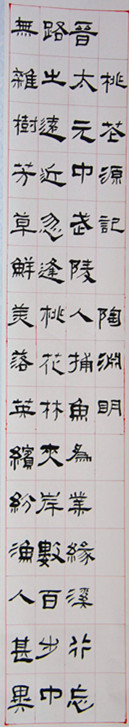 桃花源記 陶淵明
晉太元中武陵人捕魚為業緣溪行忘
路之遠近忽逢桃花林夾岸數百步中
無雜樹芳草鮮美落英繽紛漁人甚異